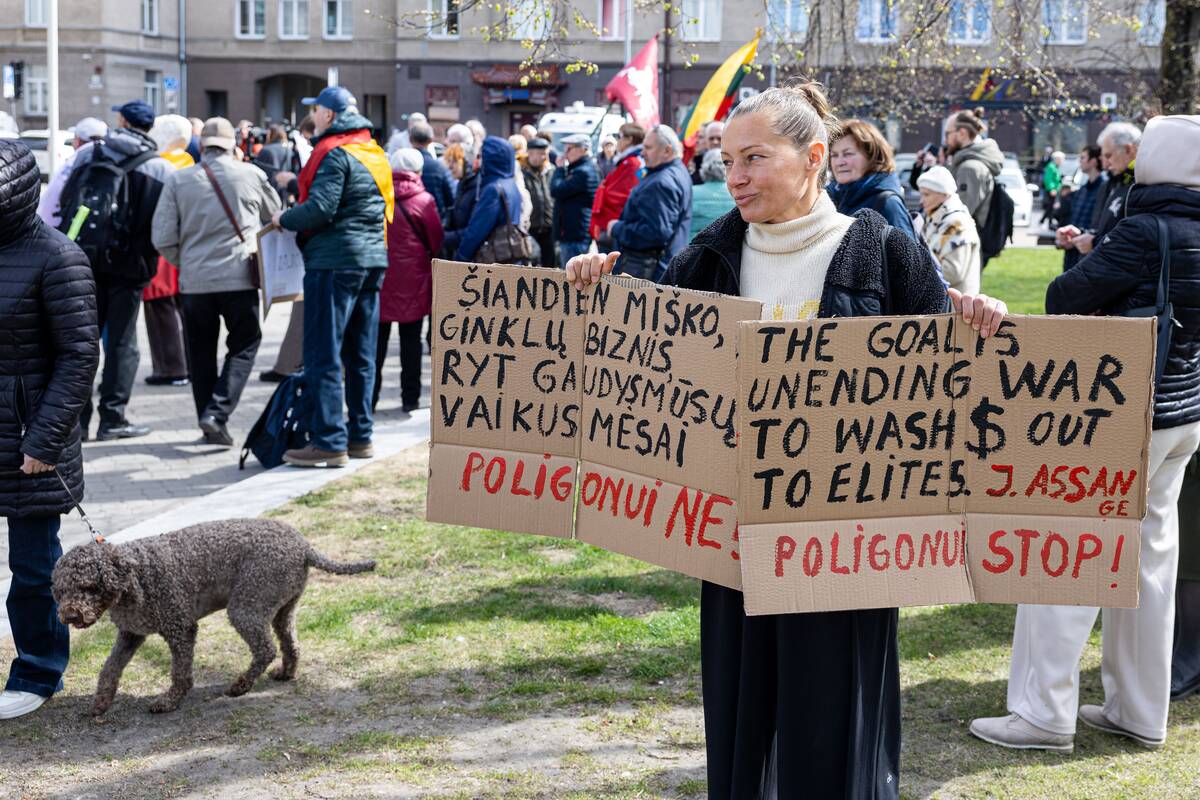 ŠIANDIEN MIŠKO,
GINKLŲ BIZNIS,
RYT GAUDYS MŪSŲ
VAIKUS MĖSAI
POLIGONUI NE
THE GOAL IS
UNENDING WAR
TO WASH $ OUT
TO ELITES. J. ASSAN
GE
POLIGONUI STOP!